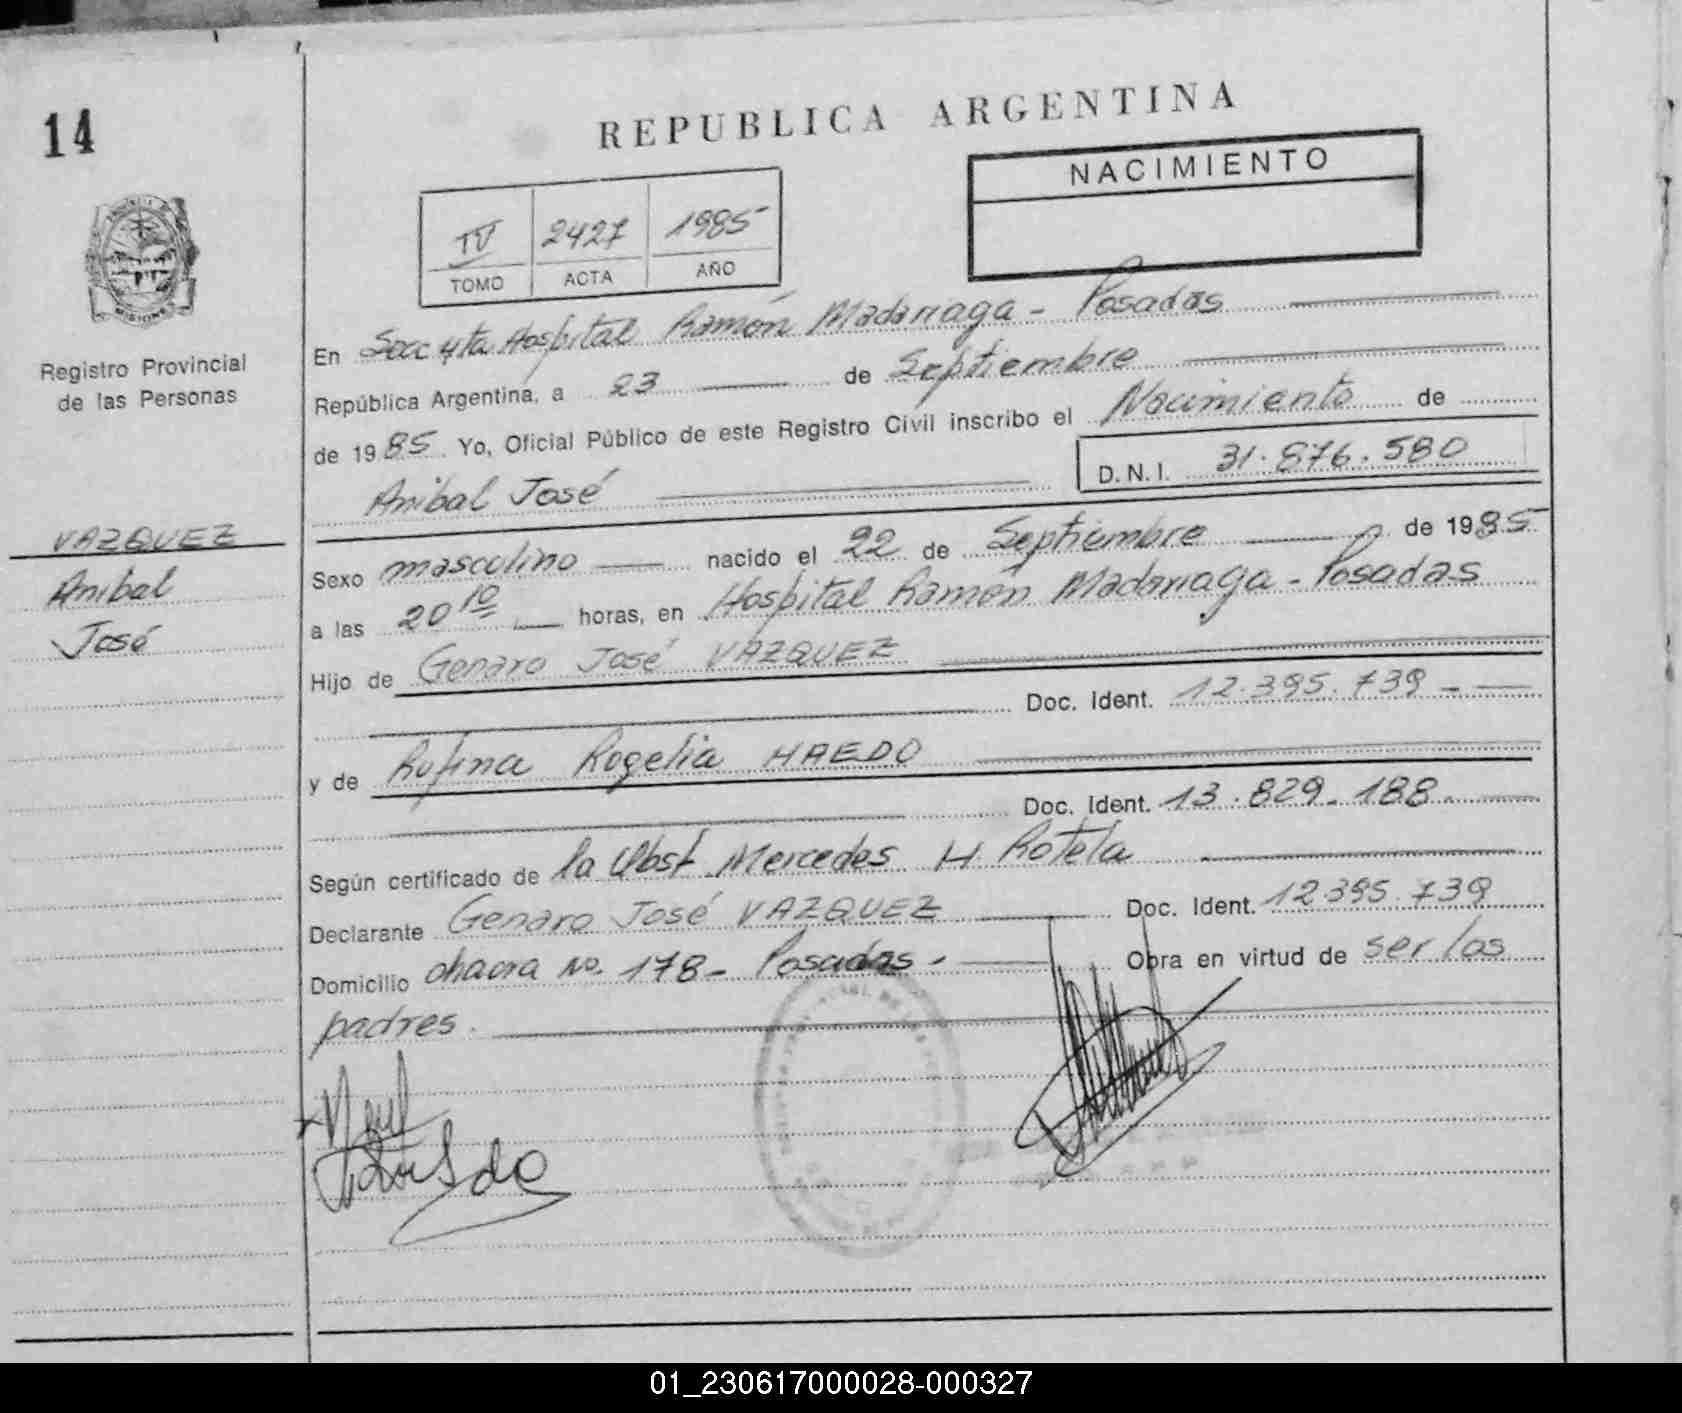 14
REPUBLICA ARGENTINA
NACIMIENTO
IV 2427 1985
TOMO ACTA AÑO
MISIONES
Registro Provincial
de las Personas
En Secc 4ta Hospital Ramón Madariaga - Posadas
República Argentina, a 23 de Septiembre
de 1985. Yo, Oficial Público de este Registro Civil inscribo el Nacimiento de
Anibal José D.N.I. 31.876.580
VAZQUEZ
Anibal
José
Sexo masculino nacido el 22 de Septiembre de 1985
a las 20 10 horas, en Hospital Ramón Madariaga - Posadas
Hijo de Genaro José VAZQUEZ
Doc. Ident. 12.395.739 -
y de Rufina Rogelia HAEDO
Doc. Ident. 13.829.188
Según certificado de la Obst Mercedes H Rotela
Declarante Genaro José VAZQUEZ Doc. Ident. 12.395.739
Domicilio chacra No. 178 - Posadas - Obra en virtud de ser los
padres.
01_230617000028-000327